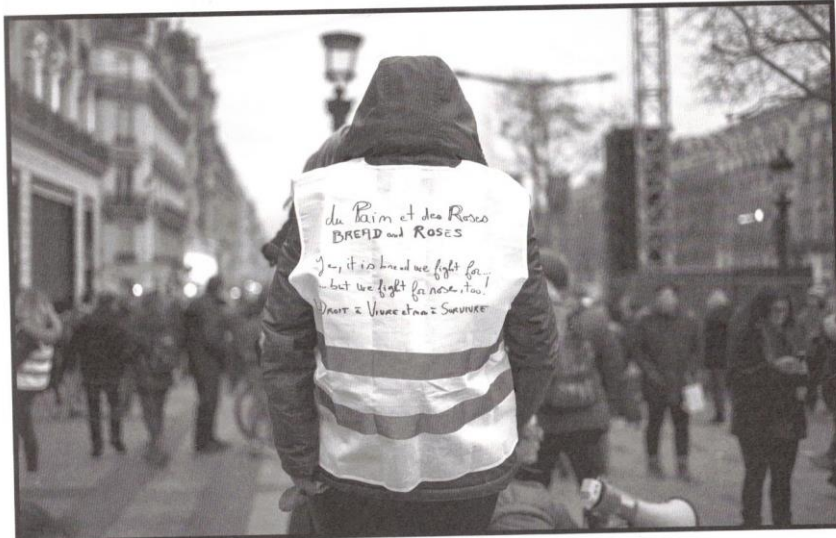 du Pain et des Roses
BREAD and ROSES
Yes, it is bread we fight for...
...but we fight for roses, too!
DROIT à VIVRE et non à SURVIVRE